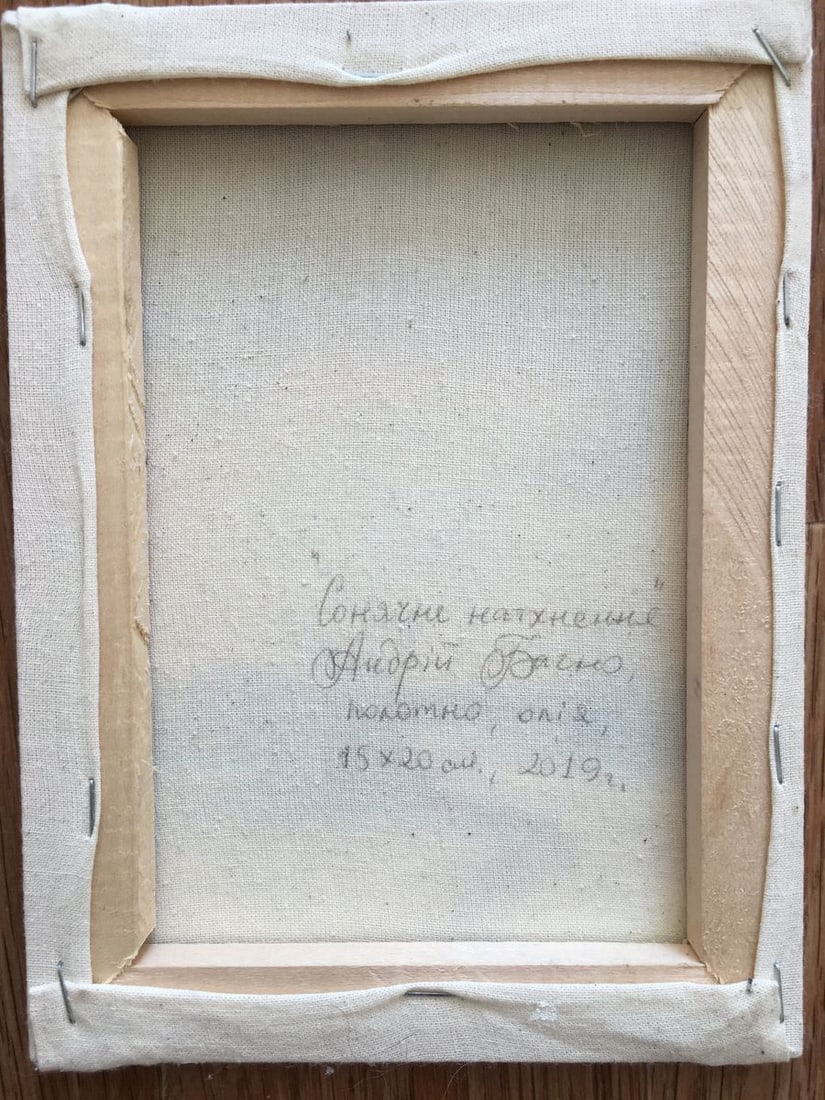 "Сонячне натхнення"
Андрій Багно,
полотно, олія,
15х20 см., 2019г.